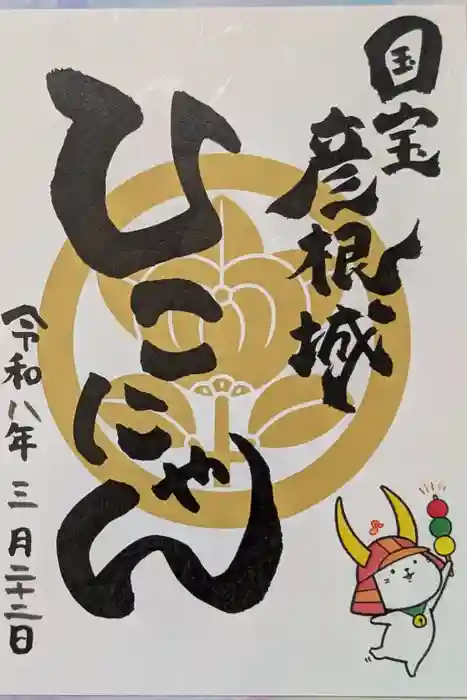 国宝
彦根城
ひこにゃん
令和八年三月二十二日